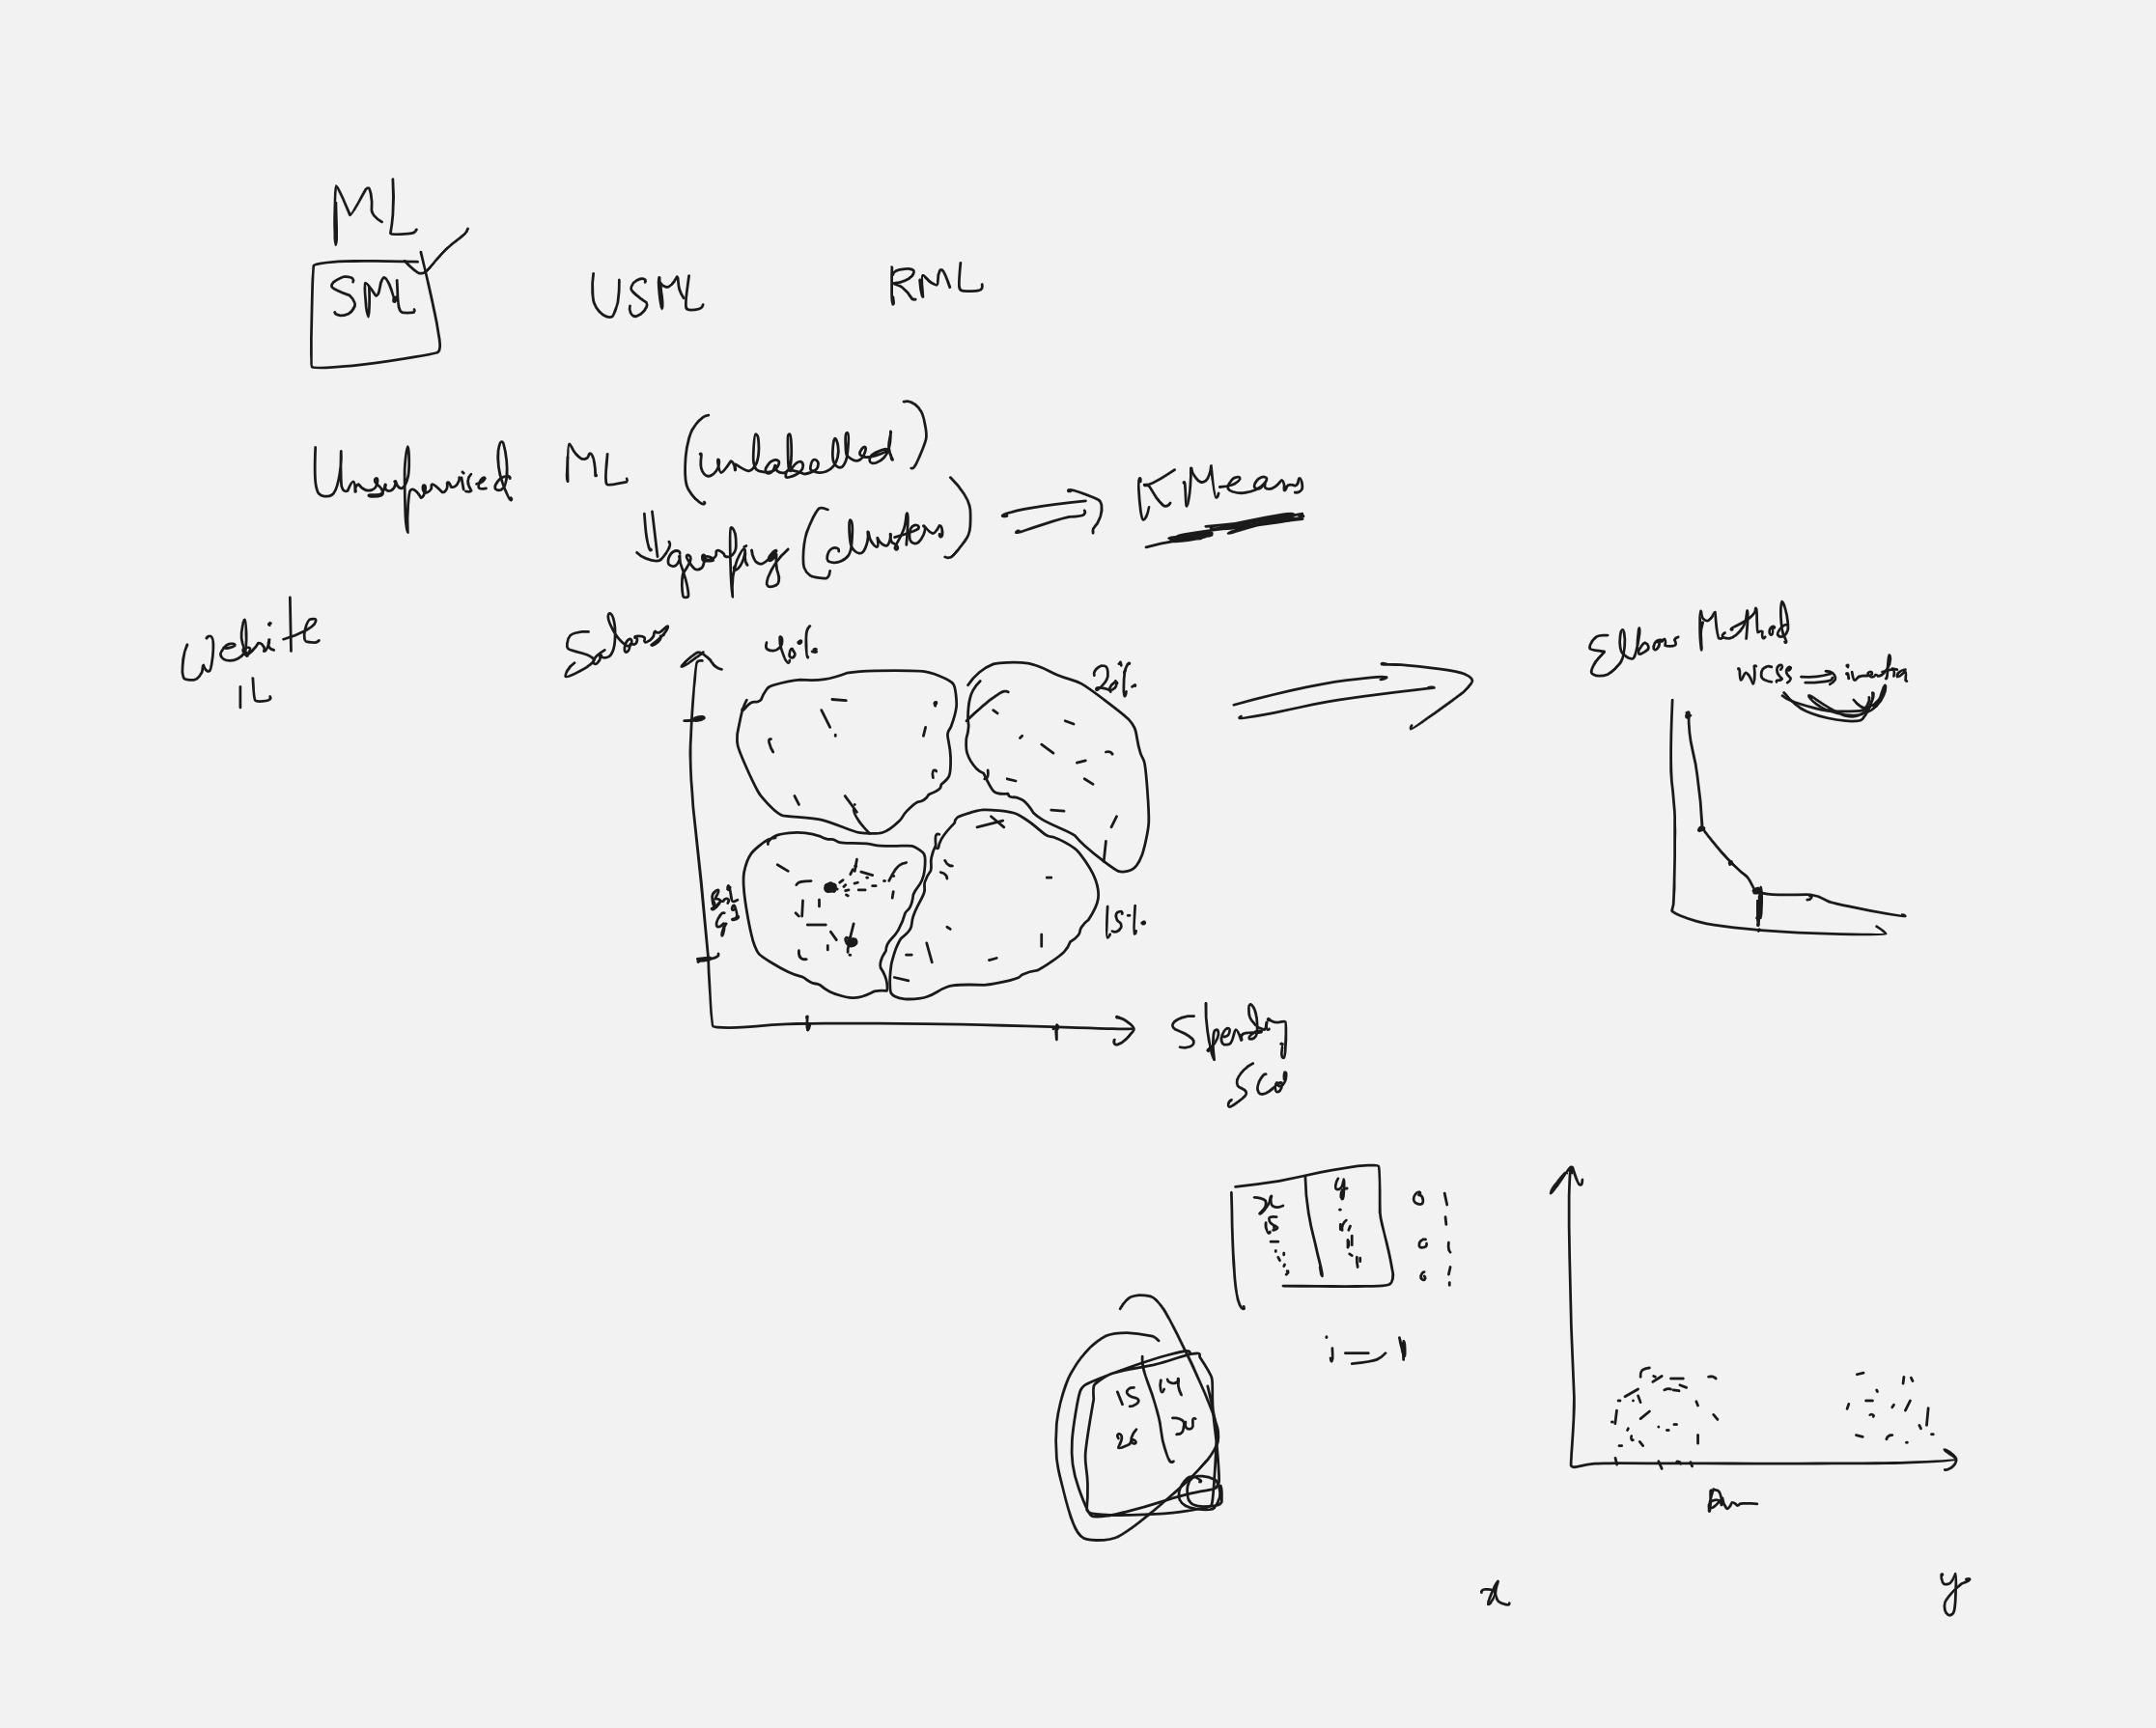 ML
SML
USML
RML
Unsupervised ML (unlabelled)
grouping (clusters)
KMeans
Website
1L
Salary
20%
15%
Spending
Elbow Method
WCSS
x
y
15
0
0
0
i
15
14
26
x
y